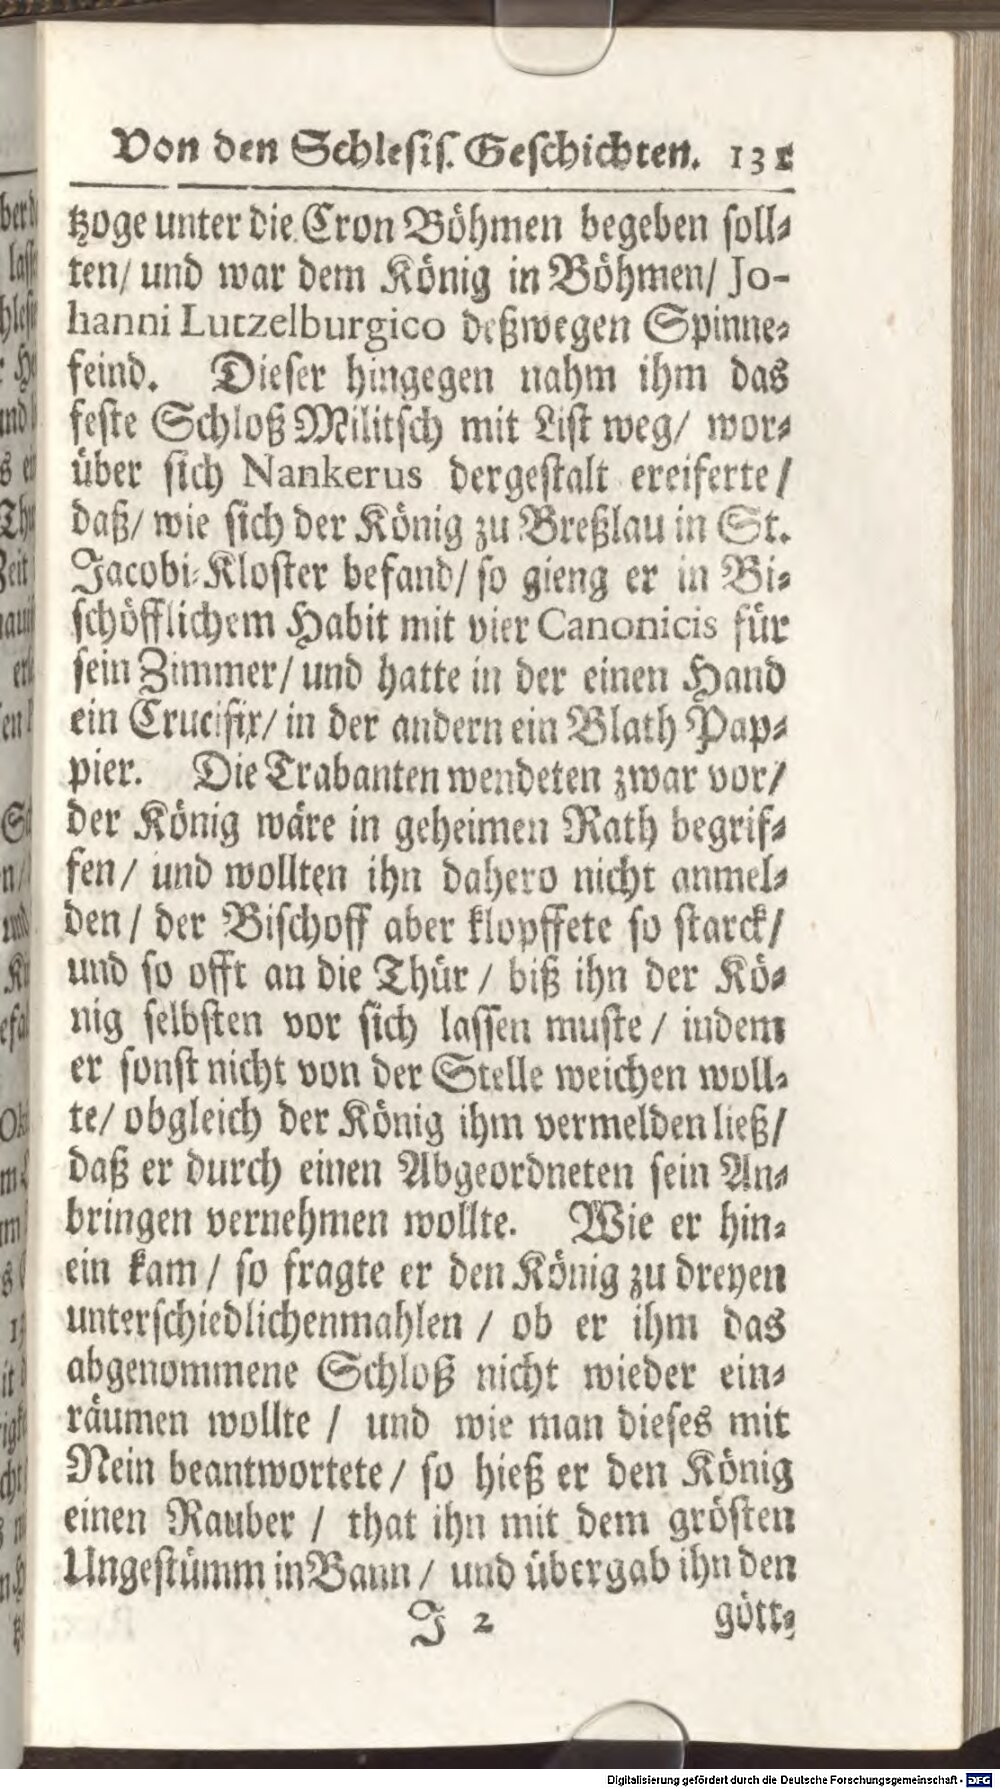 Von den Schlesis. Geschichten. 131
tzoge unter die Cron Böhmen begeben soll-
ten/ und war dem König in Böhmen/ Jo-
hanni Lutzelburgico deßwegen Spinne-
feind. Dieser hingegen nahm ihm das
feste Schloß Militsch mit List weg/ wor-
über sich Nankerus dergestalt ereiferte/
daß/ wie sich der König zu Breßlau in St.
Jacobi-Kloster befand/ so gieng er in Bi-
schöfflichem Habit mit vier Canonicis für
sein Zimmer/ und hatte in der einen Hand
ein Crucifix/ in der andern ein Blath Pap-
pier. Die Trabanten wendeten zwar vor/
der König wäre in geheimen Rath begrif-
fen/ und wollten ihn dahero nicht anmel-
den/ der Bischoff aber klopffete so starck/
und so offt an die Thür/ biß ihn der Kö-
nig selbsten vor sich lassen muste/ indem
er sonst nicht von der Stelle weichen woll-
te/ obgleich der König ihm vermelden ließ/
daß er durch einen Abgeordneten sein An-
bringen vernehmen wollte. Wie er hin-
ein kam/ so fragte er den König zu dreyen
unterschiedlichenmahlen/ ob er ihm das
abgenommene Schloß nicht wieder ein-
räumen wollte/ und wie man dieses mit
Nein beantwortete/ so hieß er den König
einen Rauber/ that ihn mit dem grösten
Ungestümm in Bann/ und übergab ihn den
J 2 gött-
Digitalisierung gefördert durch die Deutsche Forschungsgemeinschaft - DFG